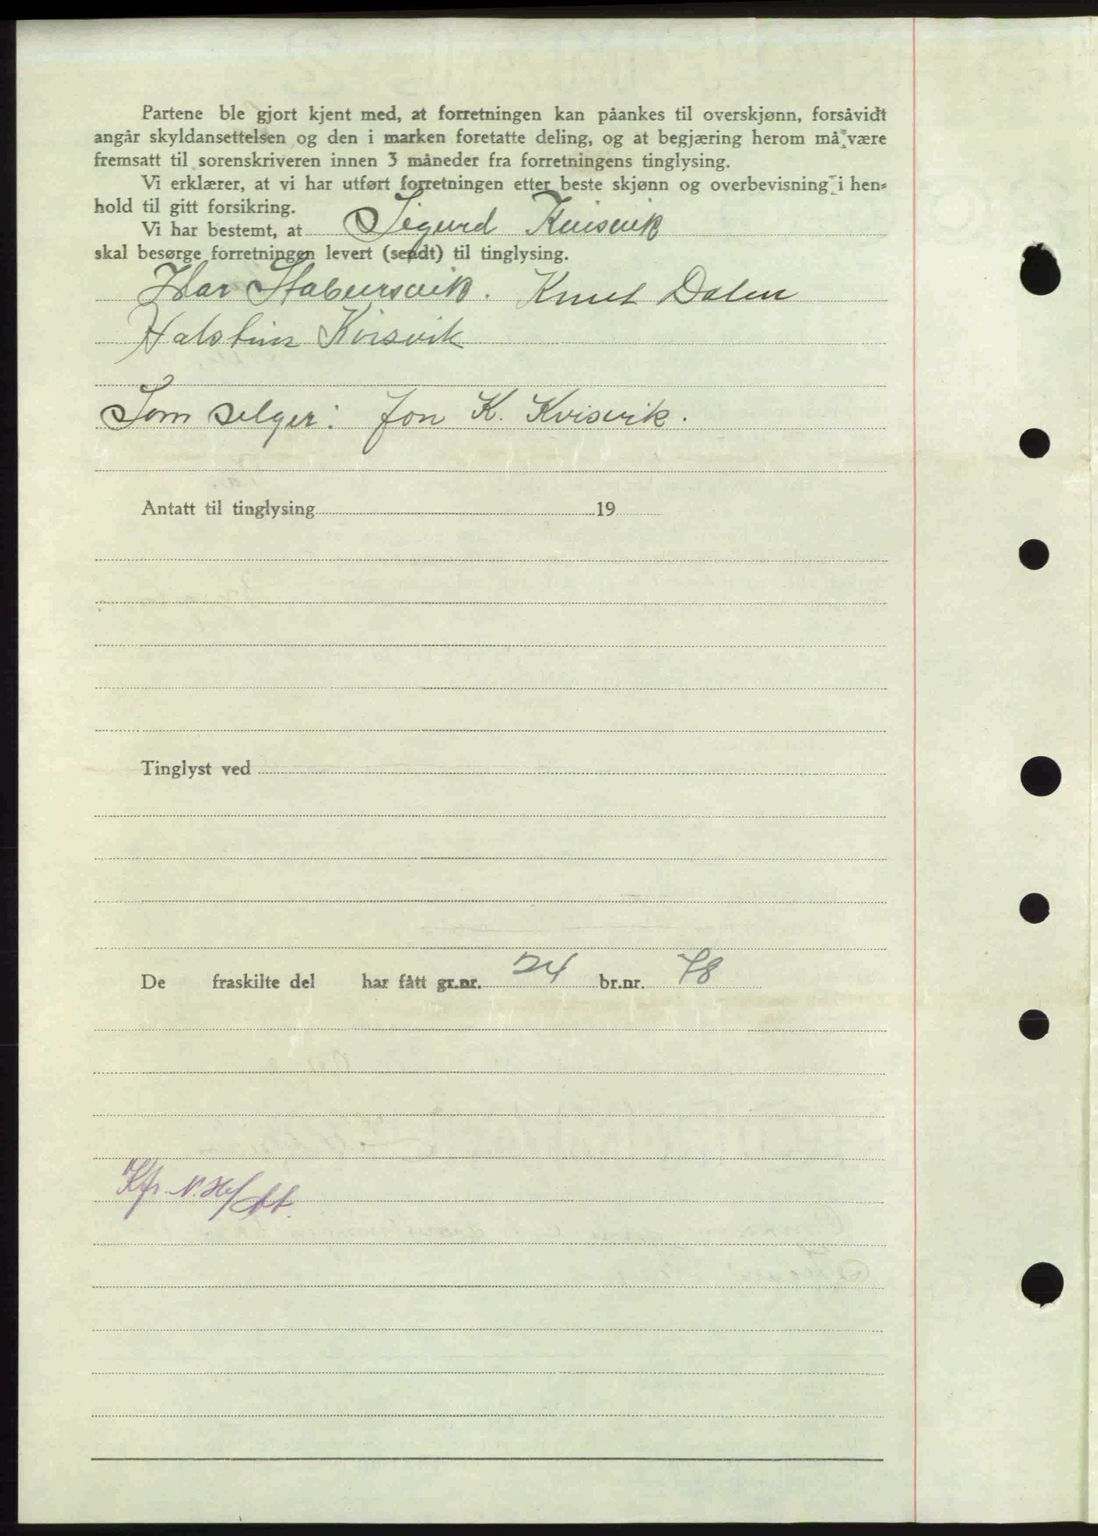 Partene ble gjort kjent med, at forretningen kan påankes til overskjønn, forsåvidt
angår skyldansettelsen og den i marken foretatte deling, og at begjæring herom må være
fremsatt til sorenskriveren innen 3 måneder fra forretningens tinglysing.
Vi erklærer, at vi har utført forretningen etter beste skjønn og overbevisning i hen-
hold til gitt forsikring.
Vi har bestemt, at Sigurd Kvisvik
skal besørge forretningen levert (sendt) til tinglysing.
Knut Dalen
Halstein Kvisvik
Som selger: Jon K. Kvisvik.
Antatt til tinglysing 19
Tinglyst ved
De fraskilte del har fått gr.nr. 24 br.nr. 78